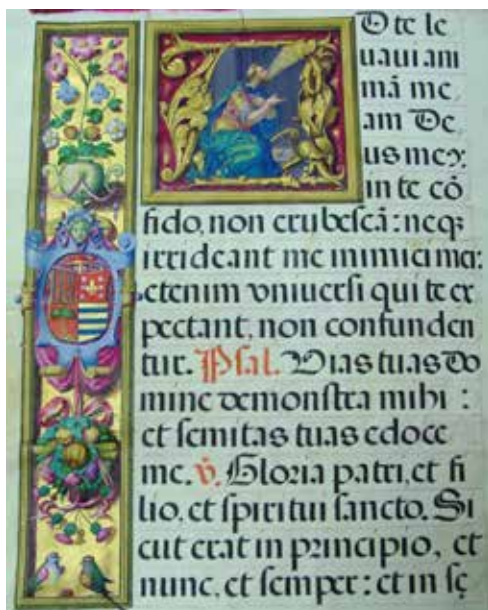 D te le
uaui ani
mã me,
am De,
us meꝰ:
in te cõ
fido, non erubescã: neqꝫ
irrideant me inimici mei:
etenim vniuersi qui te ex
pectant, non confunden
tur. Psal. Vias tuas do
mine demonstra mihi :
et semitas tuas edoce
me. ℣. Gloria patri, et fi
lio, et spiritui sancto. Si
cut erat in principio, et
nunc, et semper: et in sę